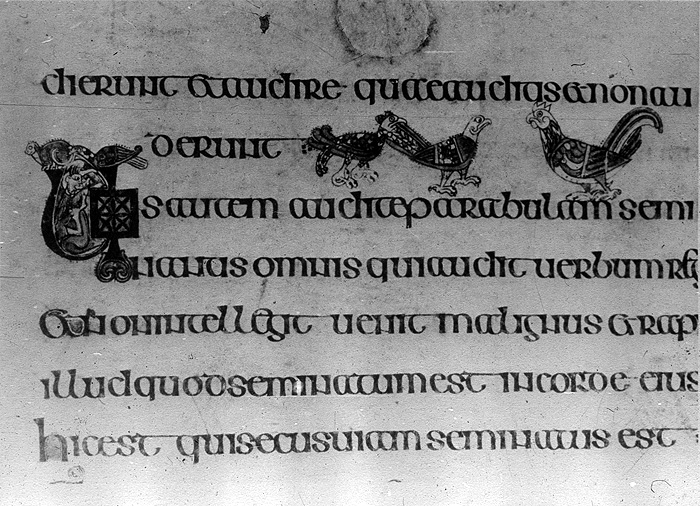 dierunt & audire quae auditis & non au
derunt
Uos autem auditae parabulam semi
nantis omnis qui audit uerbum reg
& non intellegit uenit malignus & rap
illud quod seminatum est in corde eius
hic est qui secus uiam seminatus est